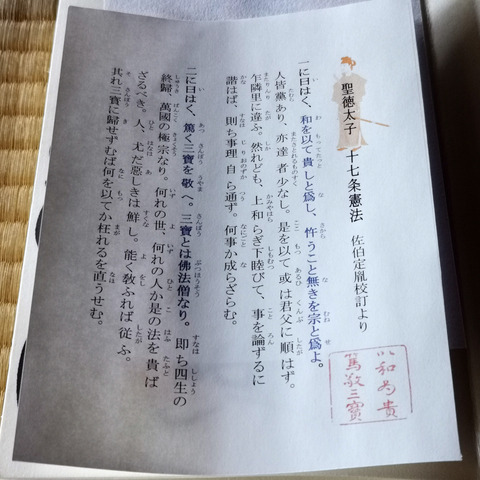 聖徳太子 十七条憲法 佐伯定胤校訂より
一に曰はく、和を以て貴しと爲し、忤うこと無きを宗と爲よ。
人皆黨あり、亦達者少なし。是を以て或は君父に順はず。
乍隣里に違ふ。然れども、上和らぎ下睦びて、事を論ずるに
諧はば、則ち事理自ら通ず。何事か成らざらむ。
二に曰はく、篤く三寶を敬へ。三寶とは佛法僧なり。即ち四生の
終歸、萬國の極宗なり。何れの世、何れの人か是の法を貴ば
ざるべき。人、尤だ惡しきは鮮し。能く敎ふれば從ふ。
其れ三寶に歸せずむば何を以てか枉れるを直うせむ。
以和为貴
篤敬三寶